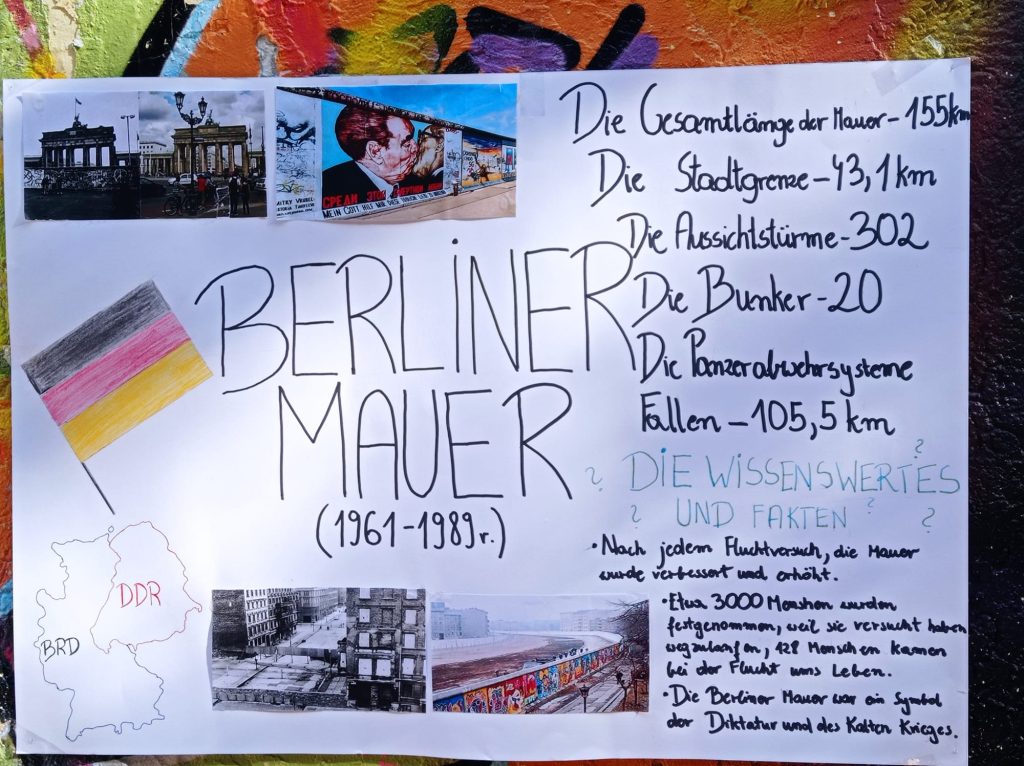 СРЕДИ ЭТОЙ СМЕРТНОЙ ЛЮБВИ
MEIN GOTT HILF MIR DIESE TÖDLICHE LIEBE ZU
Die Gesamtlänge der Mauer - 155 km
Die Stadtgrenze - 43,1 km
Die Aussichtstürme - 302
Die Bunker - 20
Die Panzerabwehrsysteme
Fallen - 105,5 km
BERLINER
MAUER
(1961-1989r.)
? DIE WISSENSWERTES ?
? UND FAKTEN ? ?
• Nach jedem Fluchtversuch, die Mauer
wurde verbessert und erhöht.
• Etwa 3000 Menschen wurden
festgenommen, weil sie versucht haben
wegzulaufen, 128 Menschen kamen
bei der Flucht ums Leben.
• Die Berliner Mauer war ein Symbol
der Diktatur und des Kalten Krieges.
DDR
BRD